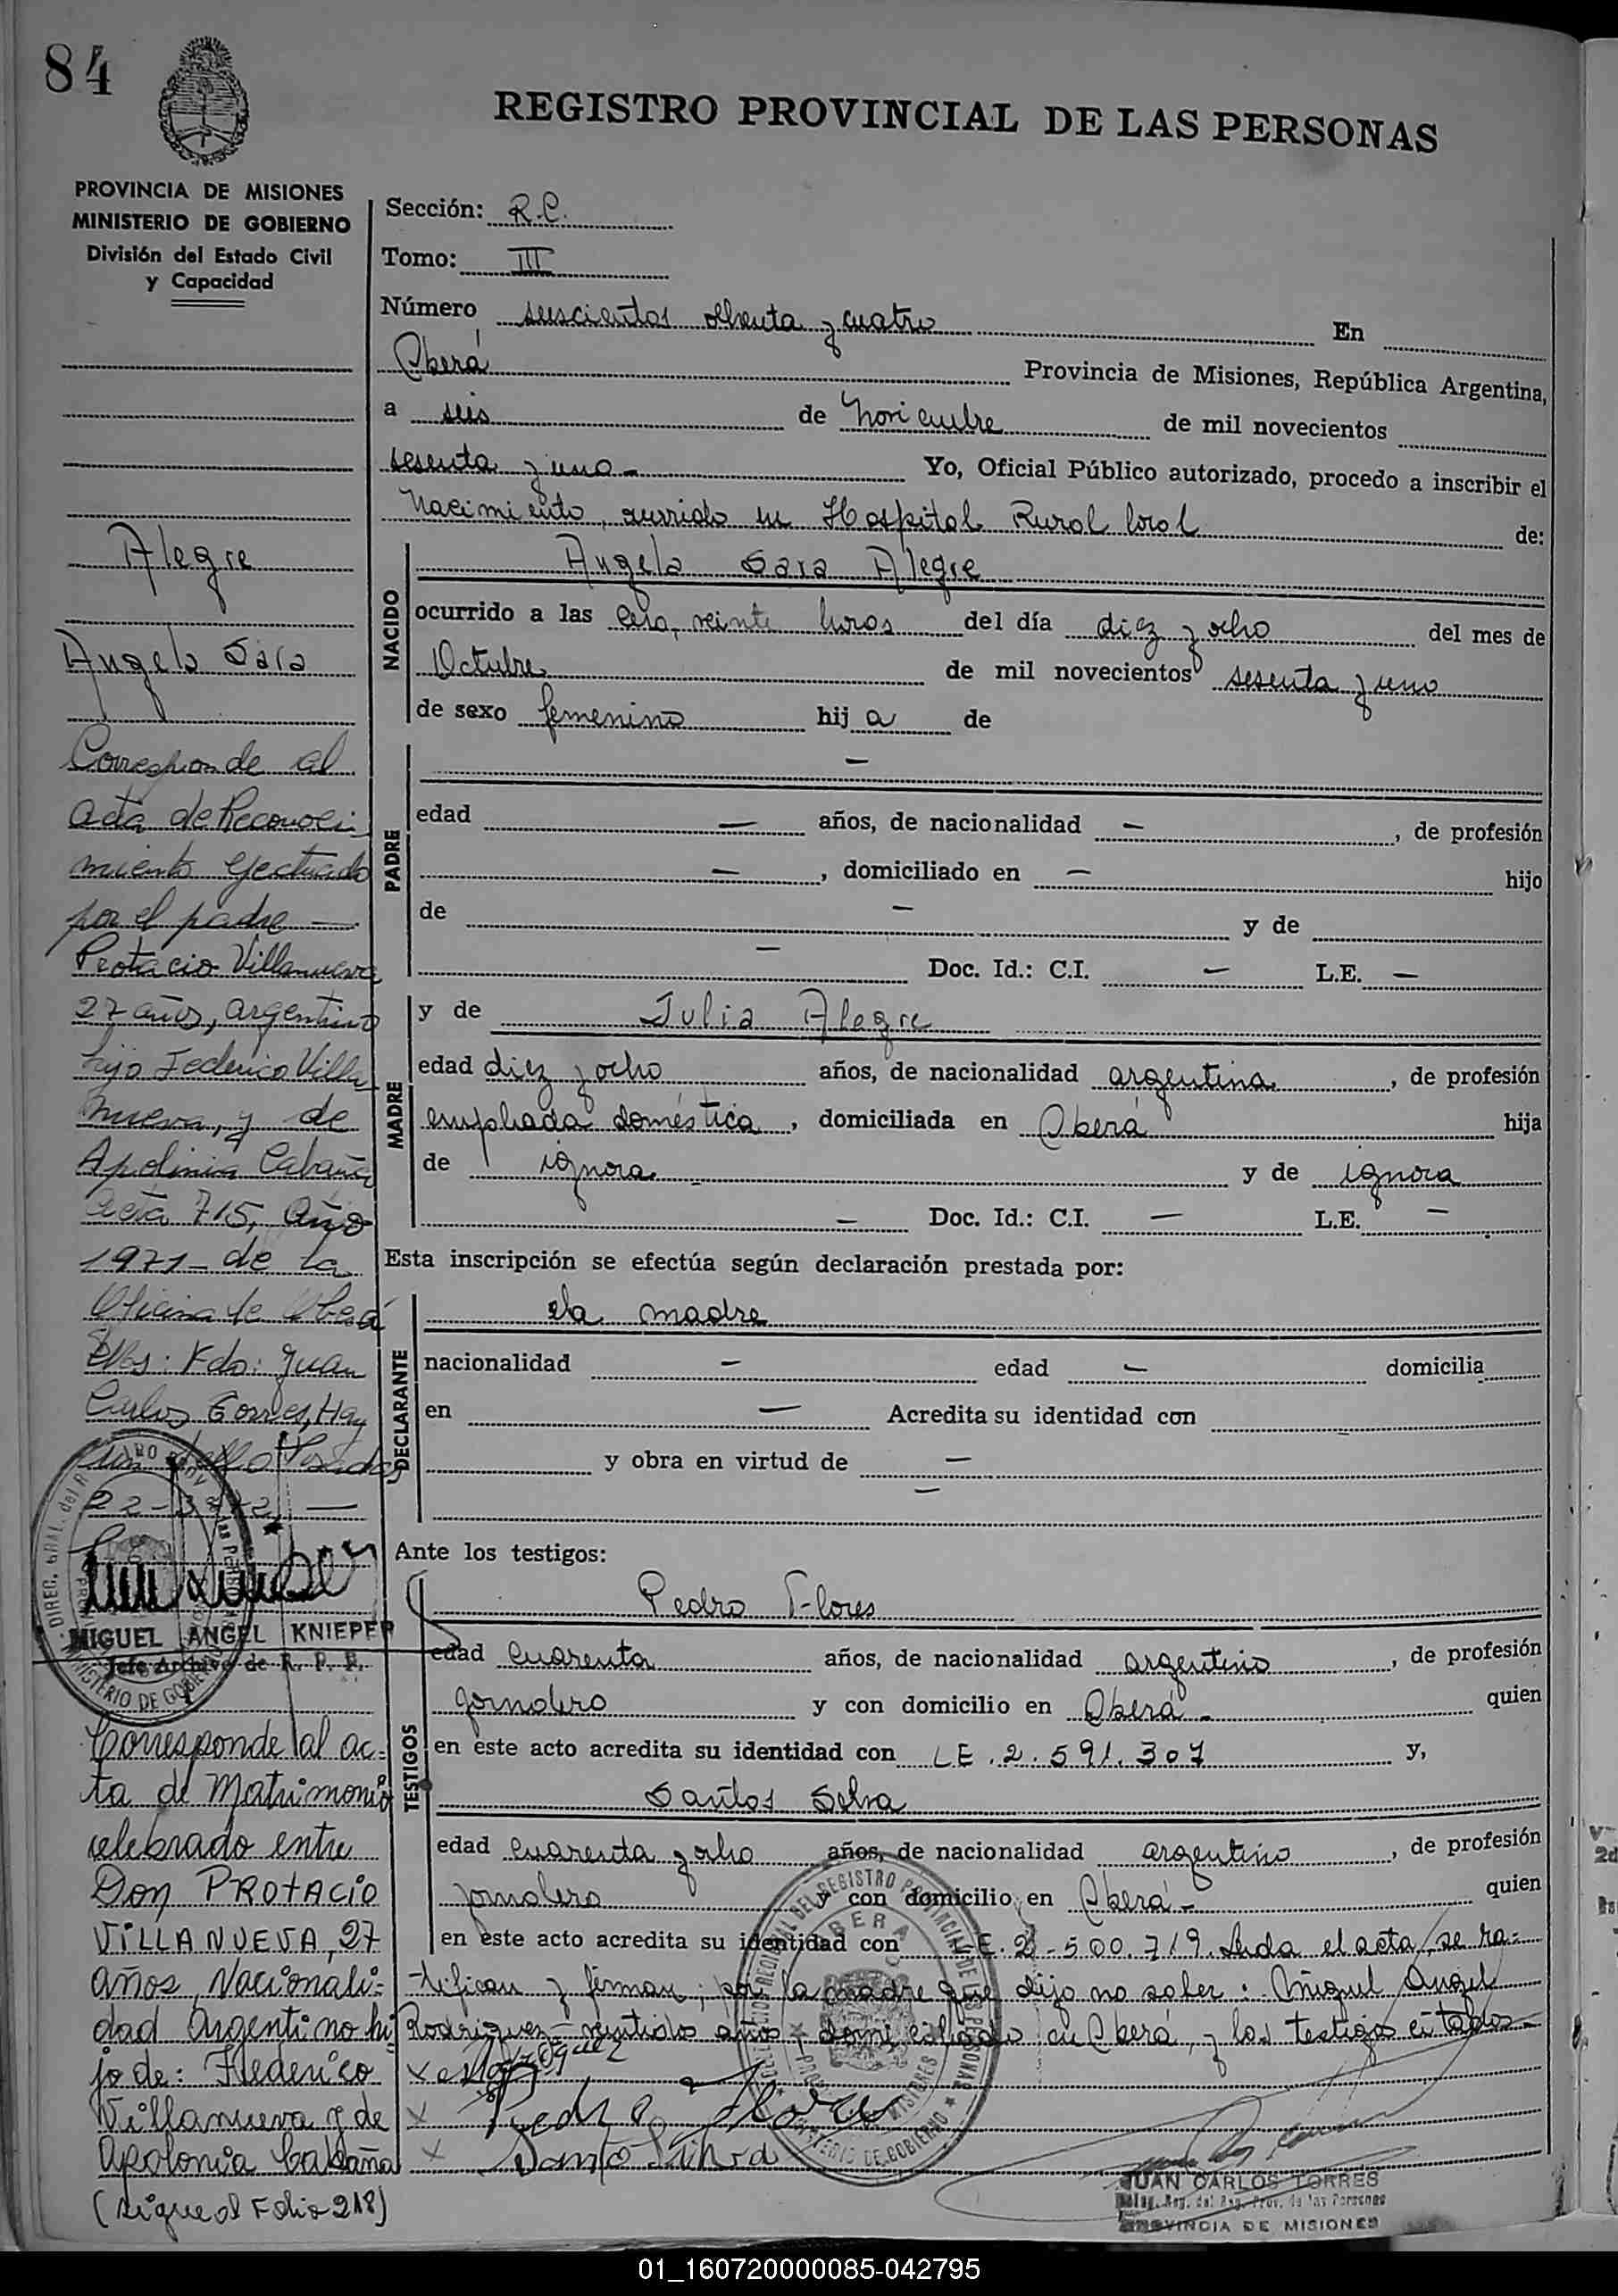 84
REGISTRO PROVINCIAL DE LAS PERSONAS
PROVINCIA DE MISIONES
MINISTERIO DE GOBIERNO
División del Estado Civil
y Capacidad
Alegre
Angela Sara
Corresponde al
acta de Reconoci-
miento efectuado
por el padre —
Protacio Villanueva
27 años, argentino
hijo Federico Villa
nueva, y de
Apolinia Cabaña
acta 715, Año
1971 - de la
Oficina de Oberá
Fdo: Juan
Carlos Torres, Hay
un sello Posadas
22-3-72 —
MIGUEL ANGEL KNIEPER
Jefe Archivo de R. P. P.
Corresponde al ac-
ta de Matrimonio
celebrado entre
Don PROTACIO
VILLANUEVA, 27
años, Nacionali-
dad Argentino hi
jo de: Federico
Villanueva y de
Apolonia Cabaña
(sigue al Folio 218)
Sección: R.C.
Tomo: III
Número seiscientos ochenta y cuatro En
Oberá Provincia de Misiones, República Argentina,
a seis de Noviembre de mil novecientos
sesenta y uno - Yo, Oficial Público autorizado, procedo a inscribir el
Nacimiento, ocurrido en Hospital Rural local de:
NACIDO
Angela Sara Alegre
ocurrido a las cero, veinte horas del día diez y ocho del mes de
Octubre de mil novecientos sesenta y uno
de sexo femenino hij a de
PADRE
—
edad — años, de nacionalidad —, de profesión
—, domiciliado en — hijo
de — y de
— Doc. Id.: C.I. — L.E. —
MADRE
y de Julia Alegre
edad diez y ocho años, de nacionalidad argentina, de profesión
empleada doméstica, domiciliada en Oberá hija
de ignora - y de ignora
— Doc. Id.: C.I. — L.E. —
Esta inscripción se efectúa según declaración prestada por:
DECLARANTE
la madre
nacionalidad — edad — domicilia
en — Acredita su identidad con
y obra en virtud de —
—
Ante los testigos:
TESTIGOS
Pedro Flores
edad cuarenta años, de nacionalidad argentino, de profesión
jornalero y con domicilio en Oberá - quien
en este acto acredita su identidad con LE. 2.591.307 y,
Santos Selva
edad cuarenta y ocho años, de nacionalidad argentino, de profesión
jornalero y con domicilio en Oberá - quien
en este acto acredita su identidad con L.E. 2.500.719. Leida el acta, se ra-
tifican y firman; por la madre que dijo no saber: Miguel Angel
Rodriguez - veintidos años - domiciliado en Oberá, y los testigos citados -
Pedro Flores
JUAN CARLOS TORRES
Deleg. Reg. del Reg. Prov. de las Personas
PROVINCIA DE MISIONES
01_160720000085-042795